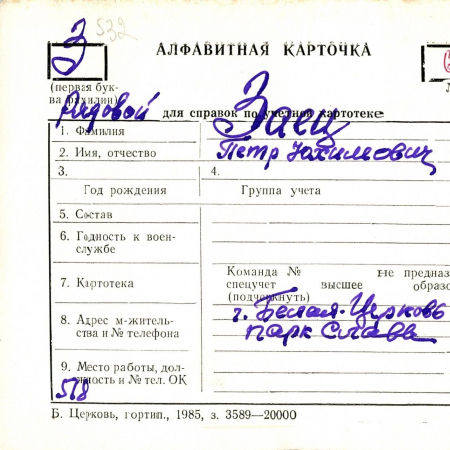 З 532
АЛФАВИТНАЯ КАРТОЧКА
(первая бук-
ва фамилии)
Рядовой для справок по учетной картотеке
1. Фамилия Заец
2. Имя, отчество Петр Юхимович
3. 4.
Год рождения Группа учета
5. Состав
6. Годность к воен-
службе
7. Картотека
Команда № не предназ
спецучет высшее образо
(подчеркнуть)
8. Адрес м-житель-
ства и № телефона
г. Белая-Церковь
парк Славы
9. Место работы, дол-
жность и № тел. ОК
518
Б. Церковь, гортип., 1985, з. 3589—20000